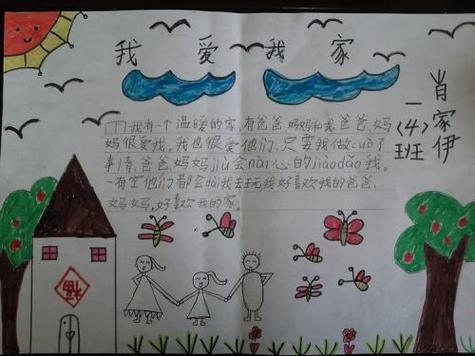 我爱我家
肖家伊
一〈4〉班
我有一个温暖的家,有爸爸妈妈和我爸爸、妈
妈很爱我,我也很爱他们,只要我做cuò了
事情,爸爸、妈妈jiù会nài心的jiāodǎo我。
一有空他们都会dài我去玩我好喜欢我的爸爸、
妈妈,好喜欢我的家。
福